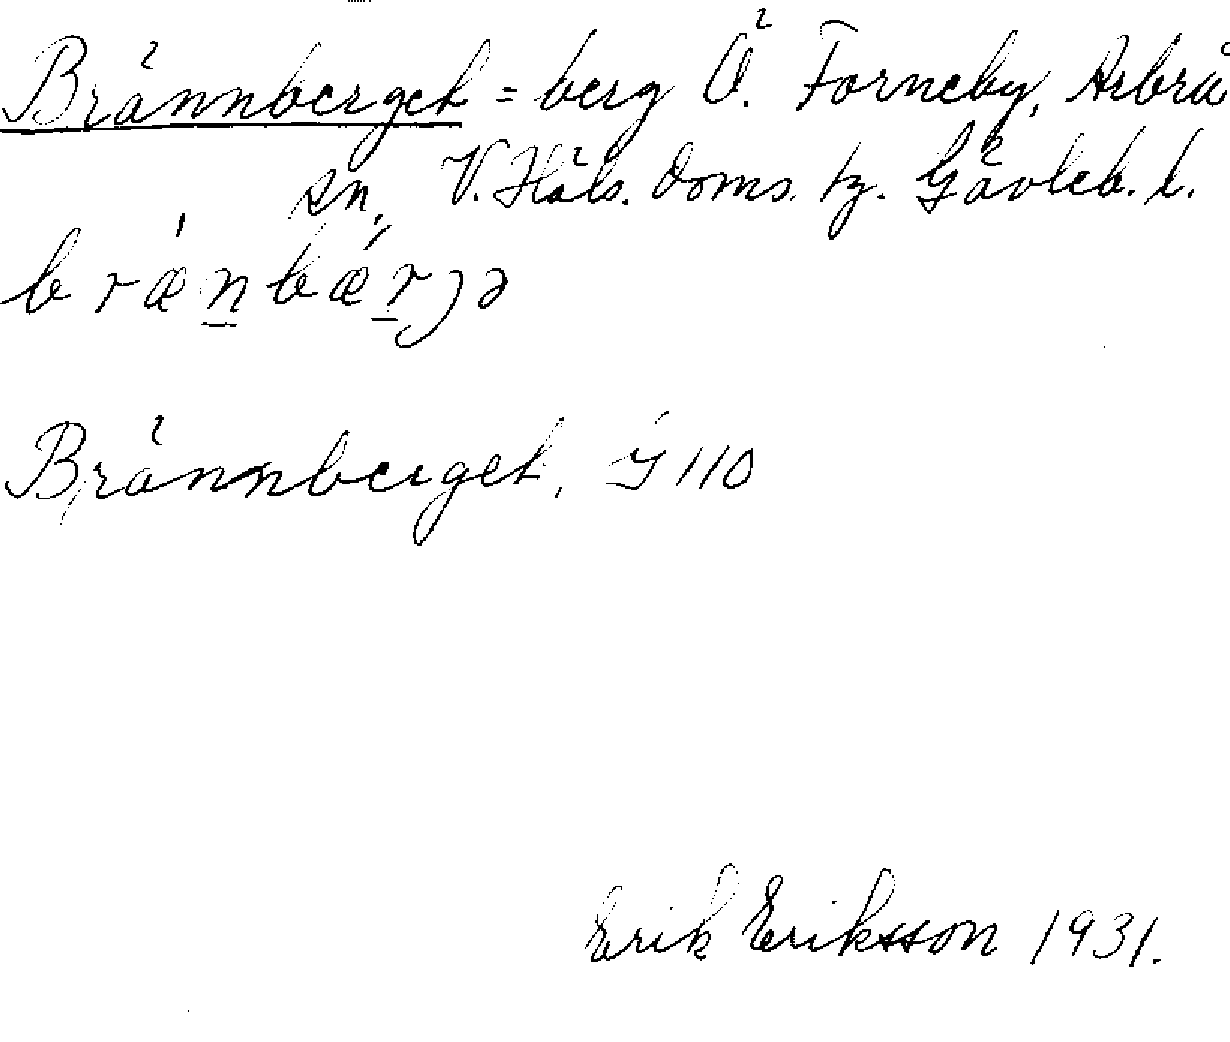 Brännberget = berg Ö. Forneby, Arbrå
sn, V. Häls. doms. tg. Gävleb. l.
brǽn̲bǽr̲jə
Brännberget, J 110
Erik Eriksson 1931.